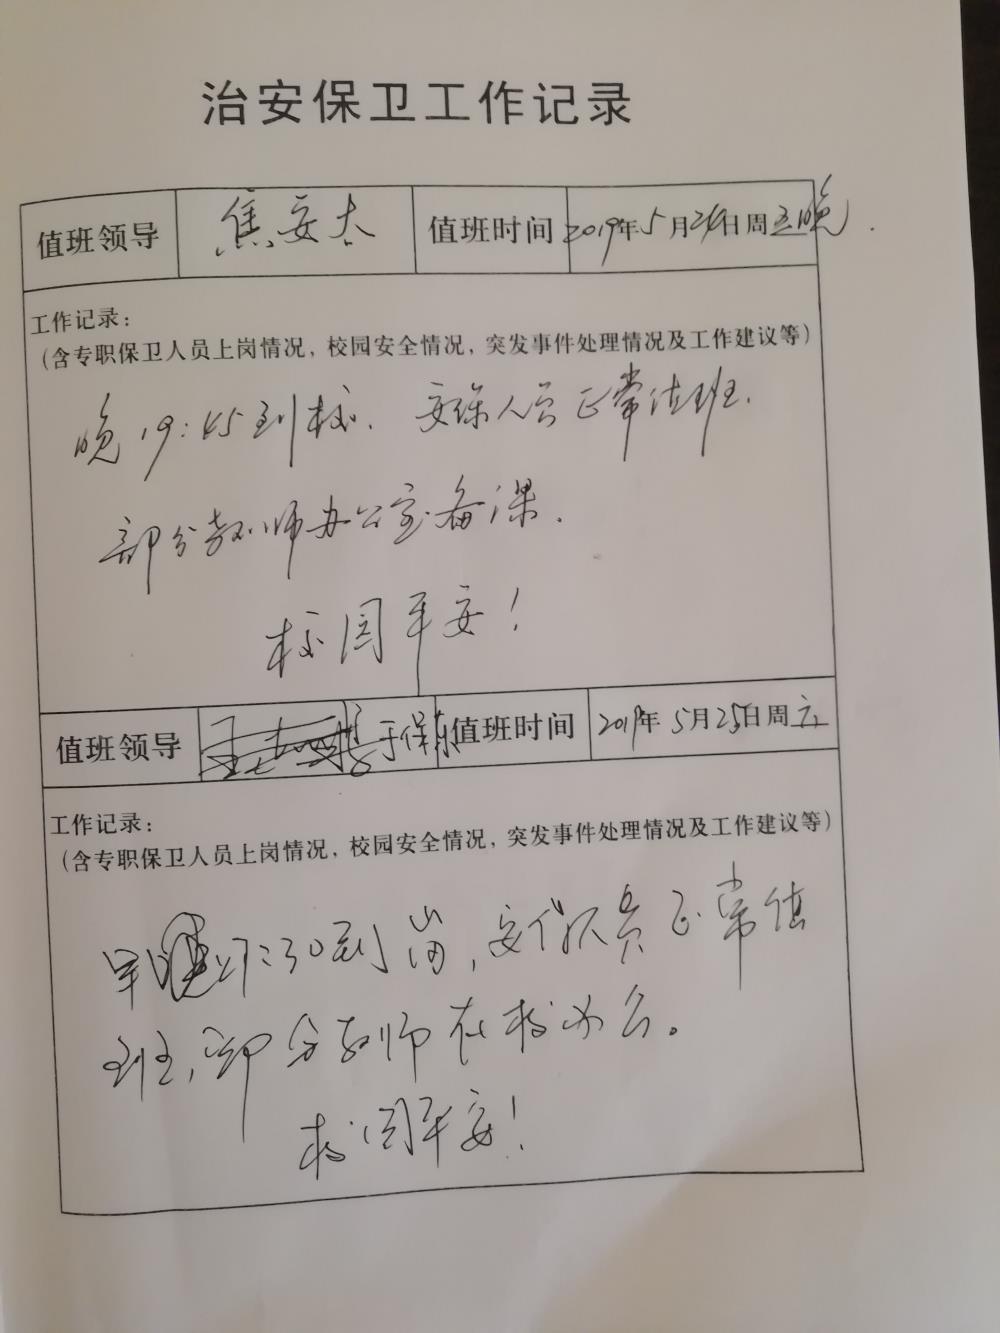 治安保卫工作记录
值班领导 焦安太 值班时间 2019年5月24日周五晚.
工作记录：
（含专职保卫人员上岗情况，校园安全情况，突发事件处理情况及工作建议等）
晚19:45到校. 安保人员正常值班.
部分教师办公室备课.
校园平安！
值班领导 于保东 值班时间 2019年5月25日周六
工作记录：
（含专职保卫人员上岗情况，校园安全情况，突发事件处理情况及工作建议等）
早 :30到岗，安保人员正常值
班，部分教师在校办公。
校园平安！